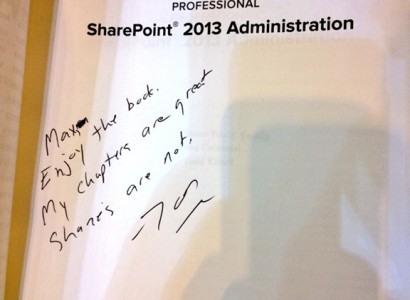 PROFESSIONAL
SharePoint® 2013 Administration
Enjoy the book.
My chapters are great
Shane's are not.